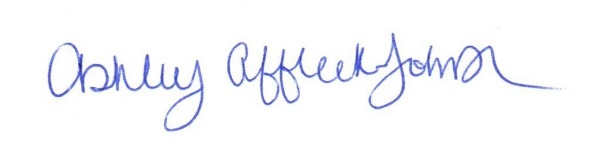 Ashley Affleck-Johnson